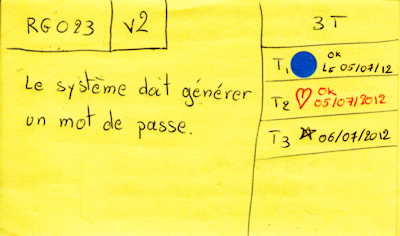 RG023
v2
Le système doit générer
un mot de passe.
3 T
T1 OK
Le 05/07/12
T2 OK
05/07/2012
T3 06/07/2012